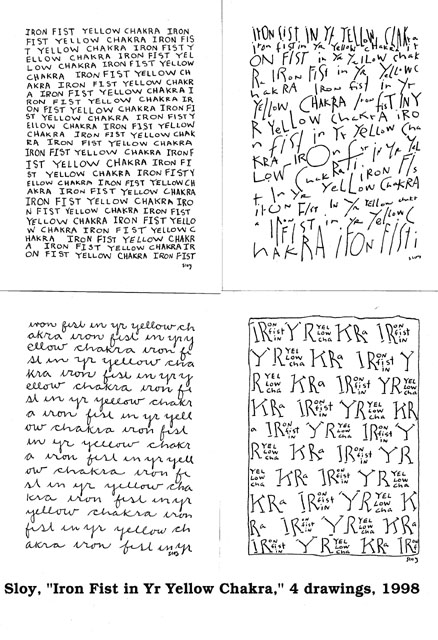 IRON FIST YELLOW CHAKRA IRON
FIST YELLOW CHAKRA IRON FIS
T YELLOW CHAKRA IRON FIST Y
ELLOW CHAKRA IRON FIST YEL
LOW CHAKRA IRON FIST YELLOW
CHAKRA IRON FIST YELLOW CH
AKRA IRON FIST YELLOW CHAKR
A IRON FIST YELLOW CHAKRA I
RON FIST YELLOW CHAKRA IR
ON FIST YELLOW CHAKRA IRON FI
ST YELLOW CHAKRA IRON FIST Y
ELLOW CHAKRA IRON FIST YELL
OW CHAKRA IRON FIST YELLOW
CHAKRA IRON FIST YELLOW CHAK
RA IRON FIST YELLOW CHAKRA
IRON FIST YELLOW CHAKRA IRON F
IST YELLOW CHAKRA IRON FI
ST YELLOW CHAKRA IRON FIST Y
ELLOW CHAKRA IRON FIST YELLOW CH
AKRA IRON FIST YELLOW CHAKRA
IRON FIST YELLOW CHAKRA IRO
N FIST YELLOW CHAKRA IRON FIST
YELLOW CHAKRA IRON FIST YELLO
W CHAKRA IRON FIST YELLOW C
HAKRA IRON FIST YELLOW CHAKR
A IRON FIST YELLOW CHAKRA IR
ON FIST YELLOW CHAKRA IRON FIST
Sloy
IRON FIST IN YR YELLOW CHAKRA
iron fist in Yr Yellow chakra ir
ON FIST in Yr YElLow chak
RA IRon FIST in Yr YellowC
hakRA IRon fist In Yr
YEllow CHAKRA iron fiST IN Y
R YellOW chakrA iRO
n fiST in YR Yellow Cha
KRA IRON fist in Yr Yel
LOW chakRA IRON Fis
t In Yr YellOW ChAKRA
irON FIst in Yr Yellow chakr
a IRON FISt in Yr Yellow C
hAKRA iron FISt i
Sloy
iron fist in yr yellow ch
akra iron fist in yr y
ellow chakra iron fi
st in yr yellow cha
kra iron fist in yr y
ellow chakra iron fi
st in yr yellow chakr
a iron fist in yr yell
ow chakra iron fist
in yr yellow chakr
a iron fist in yr yell
ow chakra iron fi
st in yr yellow cha
kra iron fist in yr
yellow chakra iron
fist in yr yellow ch
akra iron fist in yr
Sloy
IRON fist in YR YEL LOW cha KRa IRON fist in
YR YEL LOW cha KRa IRON fist in YR
YEL LOW cha KRa IRON fist in YR YEL LOW cha
KRa IRON fist in YR YEL LOW cha KR
a IRON fist in YR YEL LOW cha KRa IRON fist in YR
YEL LOW cha KRa IRON fist in YR
YEL LOW cha KRa IRON fist in YR YEL LOW cha
KRa IRON fist in YR YEL LOW cha K
Ra IRON fist in YR YEL LOW cha KRa
IRON fist in YR YEL LOW cha KRa IRON fist in
Sloy
Sloy, "Iron Fist in Yr Yellow Chakra," 4 drawings, 1998